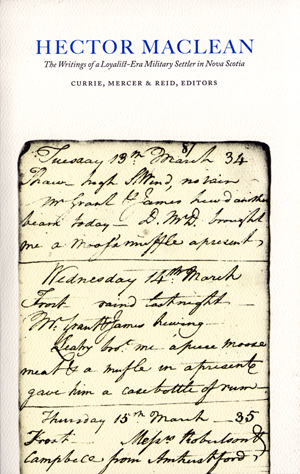 HECTOR MACLEAN
The Writings of a Loyalist-Era Military Settler in Nova Scotia
CURRIE, MERCER & REID, EDITORS
Tuesday 13th March 34
Thaw high Wind, no rain
Mr Grant & James hew'd another
beam today — D. McD. brought
me a Moose muffle a present,
Wednesday 14th March
Frost raind last night
Mr. Grant & James hewing
Leahy bro.t me a piece moose
meat & a mufle in a present &
gave him a case bottle of rum
Thursday 15th March 35
Frost Messrs Robertson &
Campbell from Amherst ford,